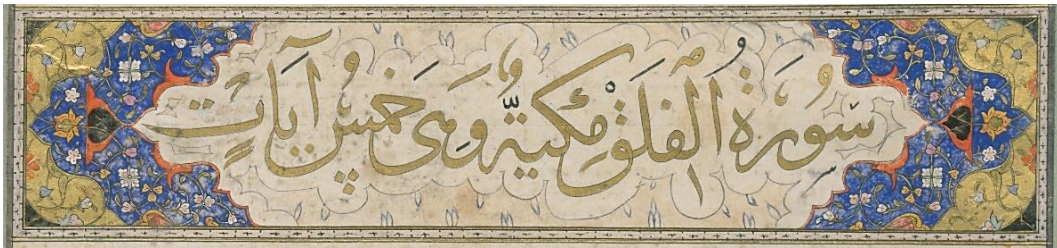 سُورَةُ الْفَلَقِ مَكِّيَّةٌ وَهِيَ خَمْسُ آيَاتٍ